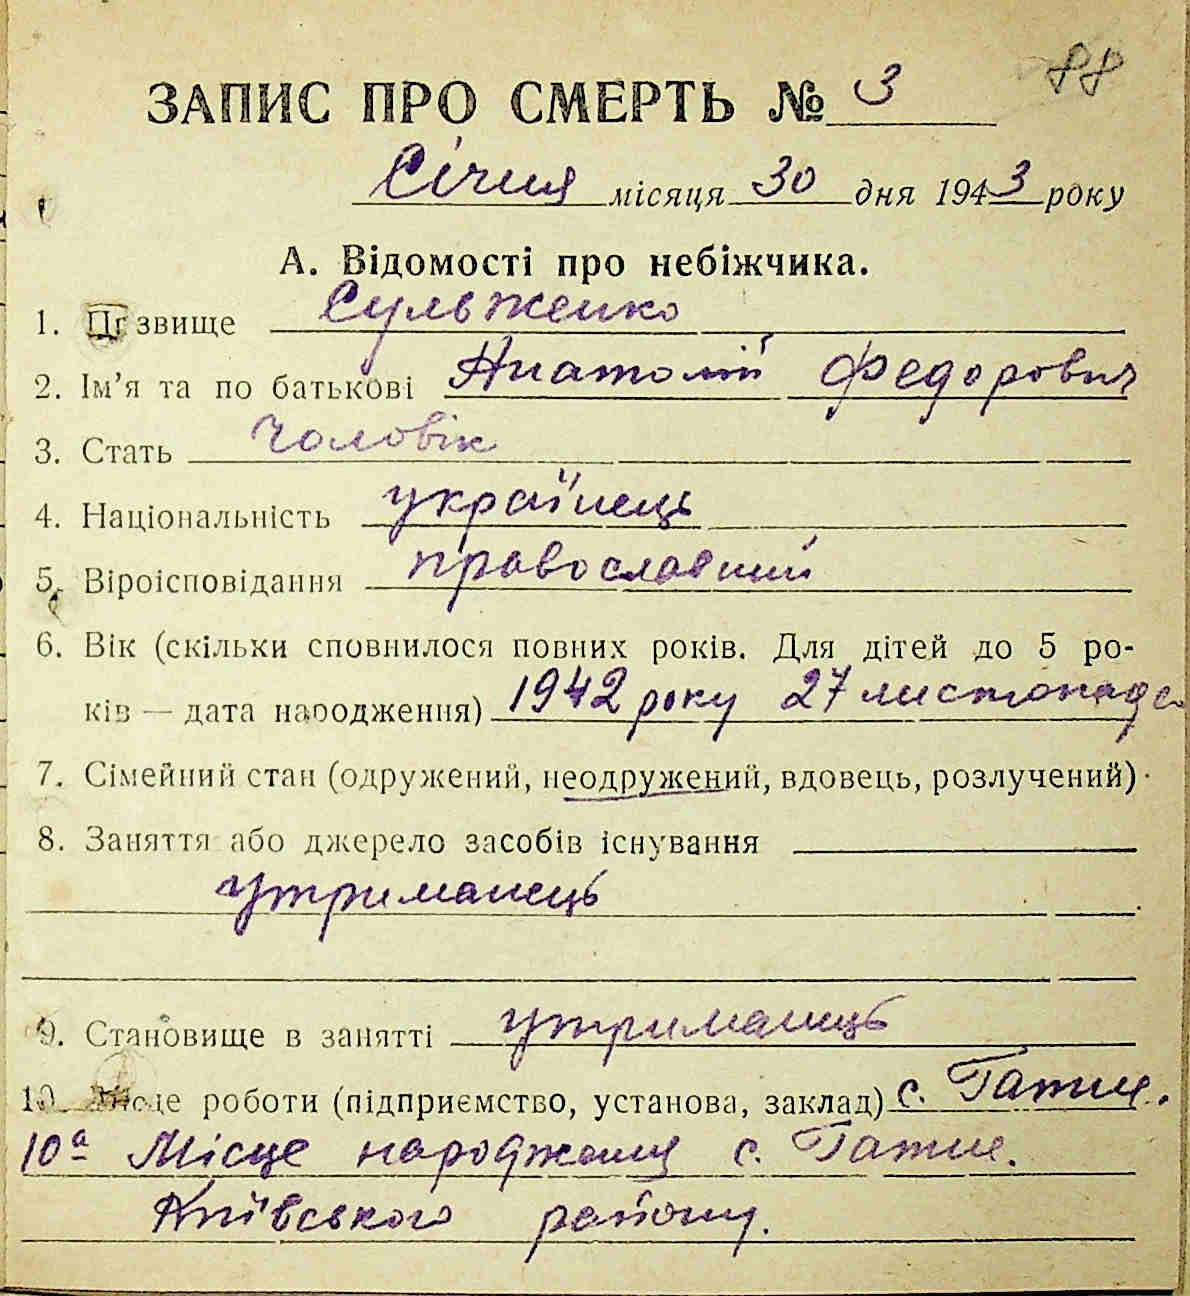 88
ЗАПИС ПРО СМЕРТЬ № 3
Січня місяця 30 дня 1943 року
А. Відомості про небіжчика.
1. Прізвище Сульженко
2. Ім'я та по батькові Анатолій Федорович
3. Стать Чоловік
4. Національність українець
5. Віроісповідання православний
6. Вік (скільки сповнилося повних років. Для дітей до 5 ро-
ків — дата народження) 1942 року 27 листопада
7. Сімейний стан (одружений, неодружений, вдовець, розлучений)
8. Заняття або джерело засобів існування
утриманець
9. Становище в занятті утриманець
10. Місце роботи (підприємство, установа, заклад) с. Гатне.
10а Місце народження с. Гатне.
Київського району.